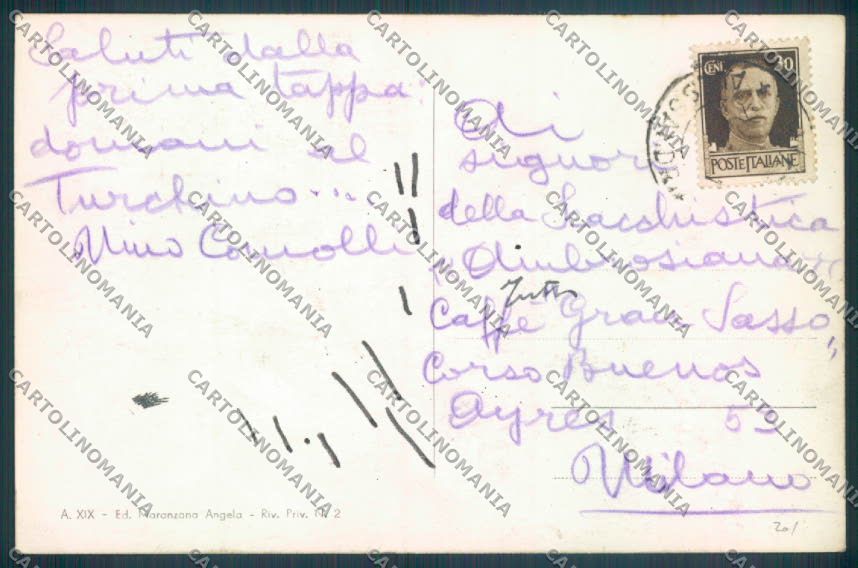 Saluti dalla
prima tappa:
domani al
Turchino...
Nino Comolli
Ai
signori
della Scacchistica
"Ambrosiana"
Tutti
Caffè Gran Sasso"
Corso Buenos
Ayres 53
Milano
CENT. 30
POSTE ITALIANE
A. XIX - Ed. Maranzana Angela - Riv. Priv. N. 2
20/
CARTOLINOMANIA